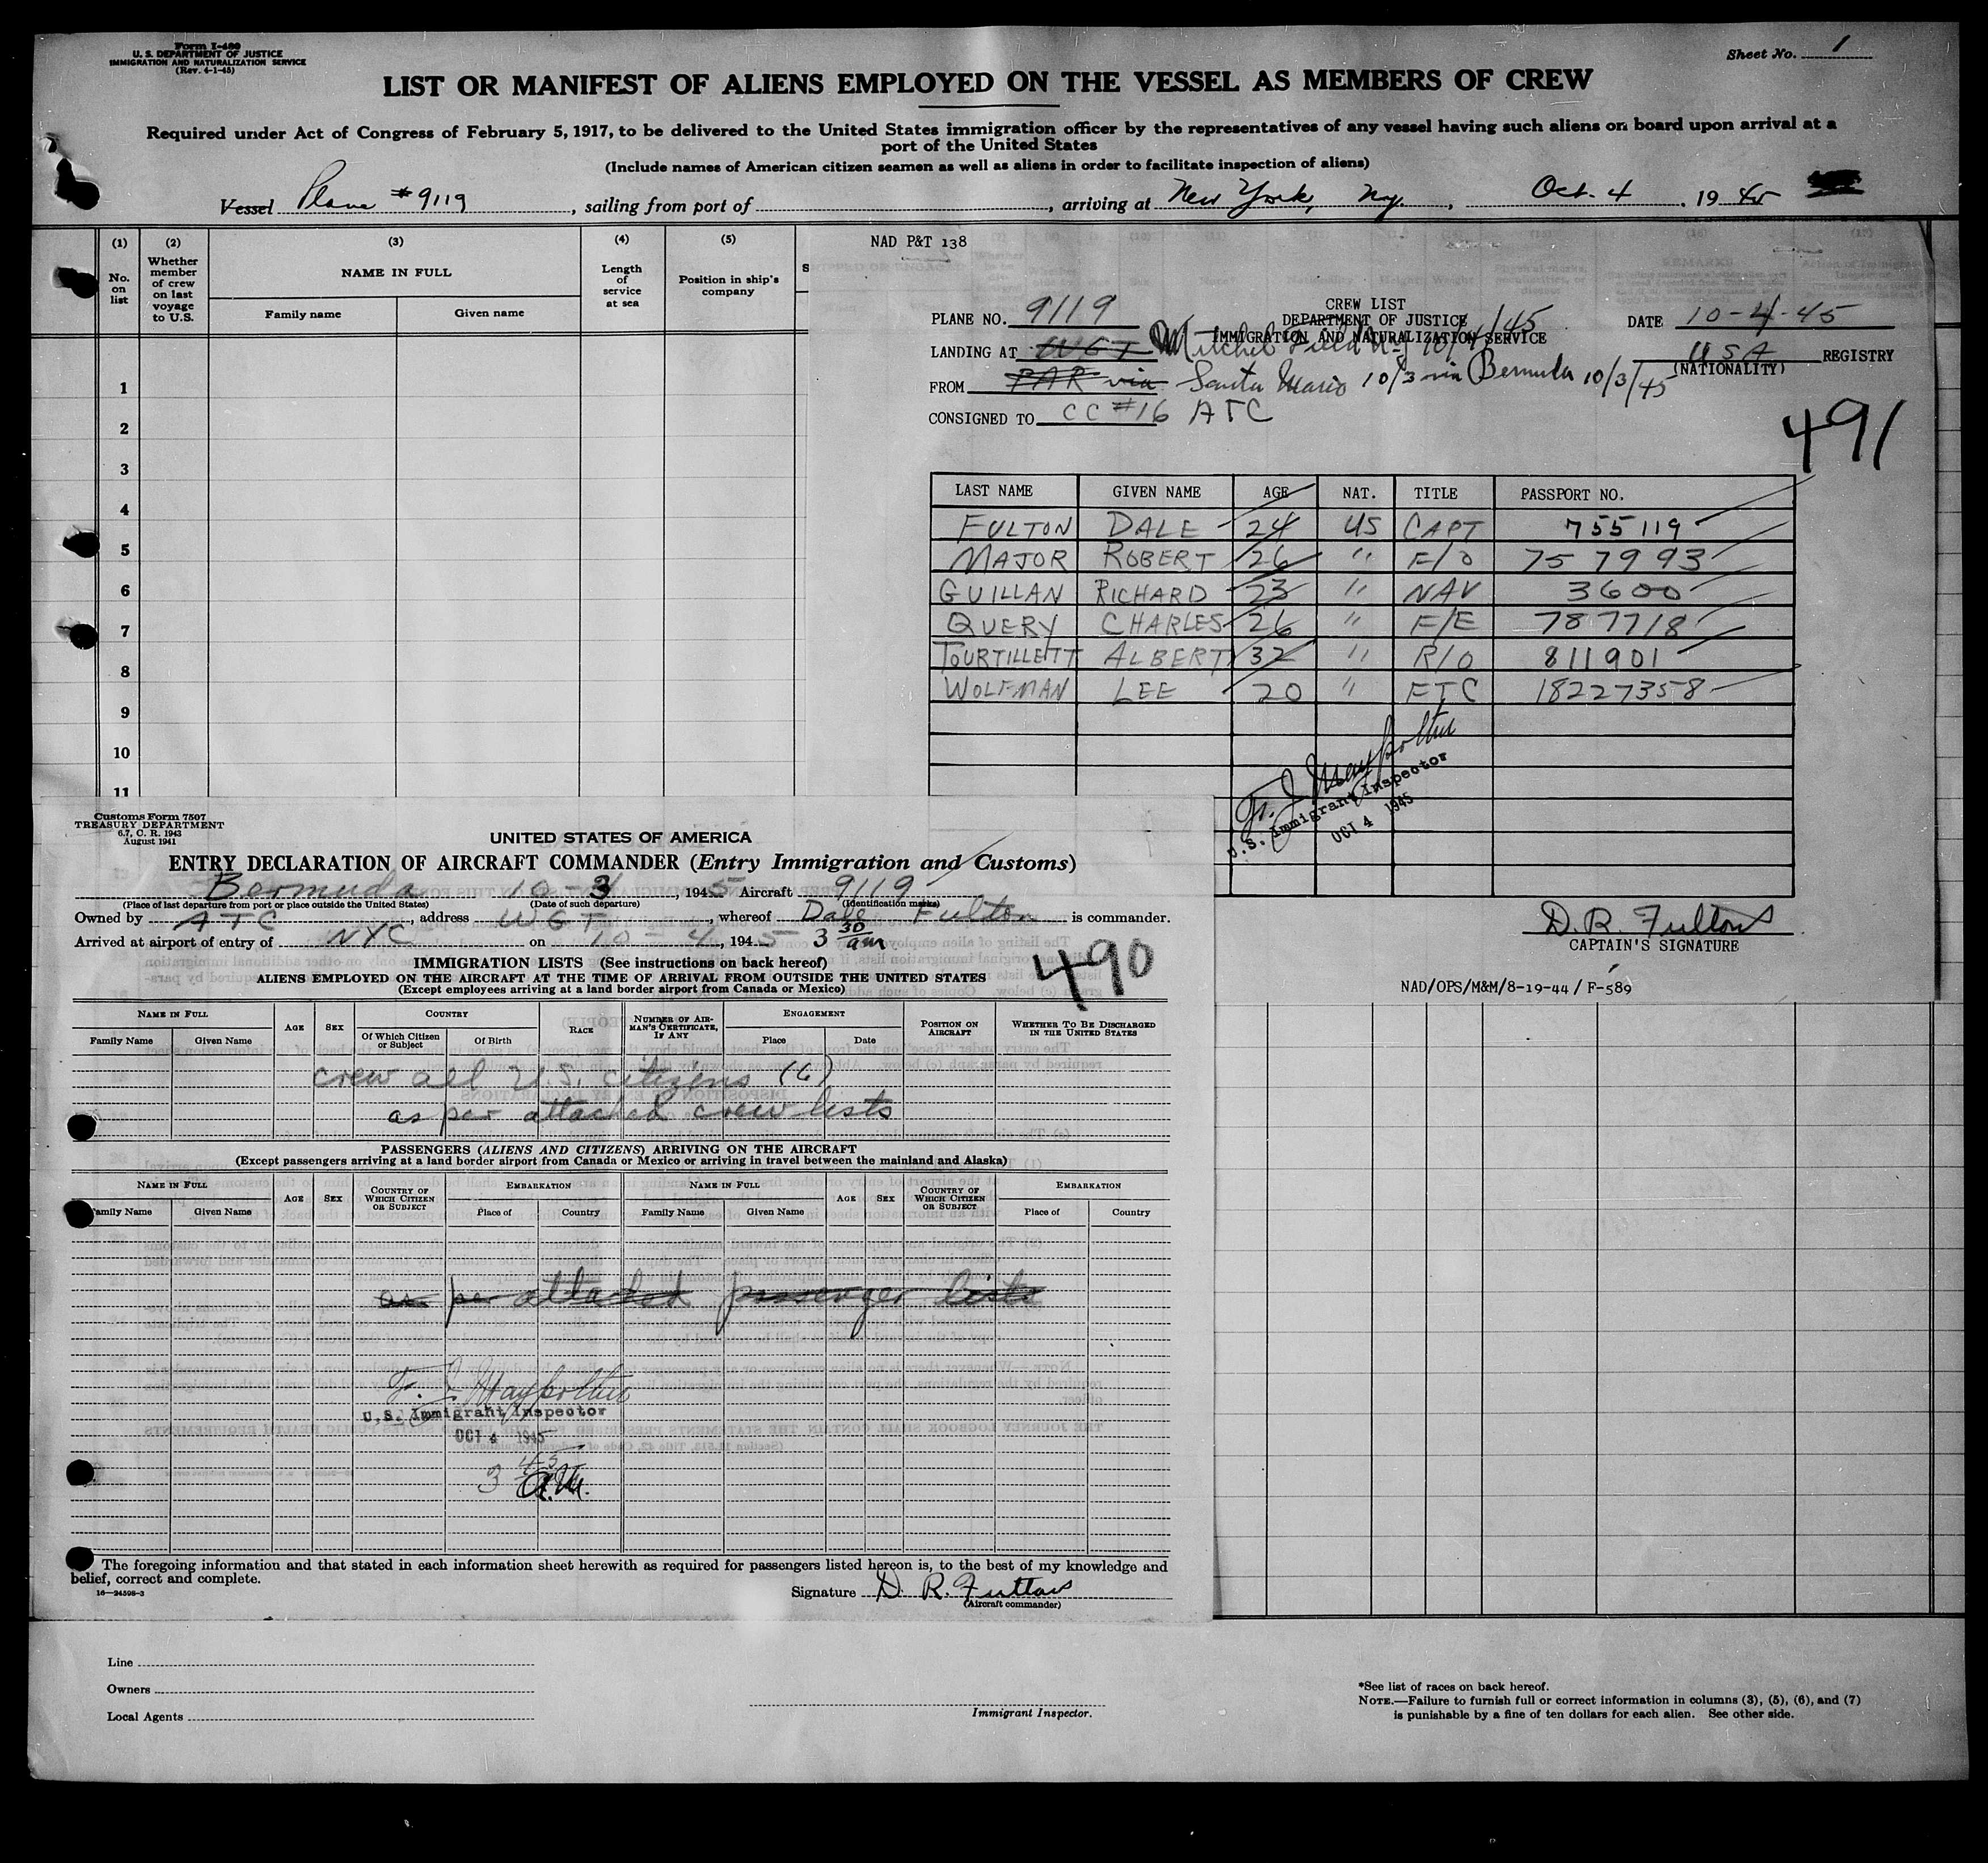 Form I-480
U. S. DEPARTMENT OF JUSTICE
IMMIGRATION AND NATURALIZATION SERVICE
(Rev. 4-1-45)
Sheet No. 1
LIST OR MANIFEST OF ALIENS EMPLOYED ON THE VESSEL AS MEMBERS OF CREW
Required under Act of Congress of February 5, 1917, to be delivered to the United States immigration officer by the representatives of any vessel having such aliens on board upon arrival at a
port of the United States
(Include names of American citizen seamen as well as aliens in order to facilitate inspection of aliens)
Vessel Plane #9119, sailing from port of , arriving at New York, N.y., Oct. 4, 1945
(1) (2) (3) (4) (5)
No. on list
Whether member of crew on last voyage to U.S.
NAME IN FULL
Family name Given name
Length of service at sea
Position in ship's company
1
2
3
4
5
6
7
8
9
10
11
NAD P&T 138
CREW LIST
DEPARTMENT OF JUSTICE
IMMIGRATION AND NATURALIZATION SERVICE
PLANE NO. 9119
DATE 10-4-45
LANDING AT WGT Mitchel Field N.y 10/4/45
USA REGISTRY
(NATIONALITY)
FROM PAR via Santa Maria 10/3 via Bermuda 10/3/45
CONSIGNED TO CC #16 ATC
491
LAST NAME GIVEN NAME AGE NAT. TITLE PASSPORT NO.
FULTON DALE 24 US CAPT 755119
MAJOR ROBERT 26 " F/O 757993
GUILLAN RICHARD 23 " NAV 3600
QUERY CHARLES 26 " F/E 787718
TOURTILLETT ALBERT 32 " R/O 811901
WOLFMAN LEE 20 " FTC 18227358
U.S. Immigrant Inspector
OCT 4 1945
D. R. Fulton
CAPTAIN'S SIGNATURE
NAD/OPS/M&M/8-19-44/F-589
Customs Form 7507
TREASURY DEPARTMENT
6.7, C. R. 1943
August 1941
UNITED STATES OF AMERICA
ENTRY DECLARATION OF AIRCRAFT COMMANDER (Entry Immigration and Customs)
Bermuda 10-3, 1945 Aircraft 9119
(Place of last departure from port or place outside the United States) (Date of such departure) (Identification marks)
Owned by ATC, address WGT, whereof Dale Fulton is commander.
Arrived at airport of entry of NYC on 10-4, 1945 3 30 am
490
IMMIGRATION LISTS (See instructions on back hereof)
ALIENS EMPLOYED ON THE AIRCRAFT AT THE TIME OF ARRIVAL FROM OUTSIDE THE UNITED STATES
(Except employees arriving at a land border airport from Canada or Mexico)
NAME IN FULL AGE SEX COUNTRY RACE NUMBER OF AIRMAN'S CERTIFICATE, IF ANY ENGAGEMENT POSITION ON AIRCRAFT WHETHER TO BE DISCHARGED IN THE UNITED STATES
Family Name Given Name Of Which Citizen or Subject Of Birth Place Date
crew all U.S. citizens (6)
as per attached crew lists
PASSENGERS (ALIENS AND CITIZENS) ARRIVING ON THE AIRCRAFT
(Except passengers arriving at a land border airport from Canada or Mexico or arriving in travel between the mainland and Alaska)
NAME IN FULL AGE SEX COUNTRY OF WHICH CITIZEN OR SUBJECT EMBARKATION NAME IN FULL AGE SEX COUNTRY OF WHICH CITIZEN OR SUBJECT EMBARKATION
Family Name Given Name Place of Country Family Name Given Name Place of Country
as per attached passenger lists
U.S. Immigrant Inspector
OCT 4 1945
3 45 a.m.
The foregoing information and that stated in each information sheet herewith as required for passengers listed hereon is, to the best of my knowledge and
belief, correct and complete.
16-24598-3
Signature D. R. Fulton
(Aircraft commander)
Line
Owners
Local Agents
Immigrant Inspector.
*See list of races on back hereof.
NOTE.—Failure to furnish full or correct information in columns (3), (5), (6), and (7)
is punishable by a fine of ten dollars for each alien. See other side.